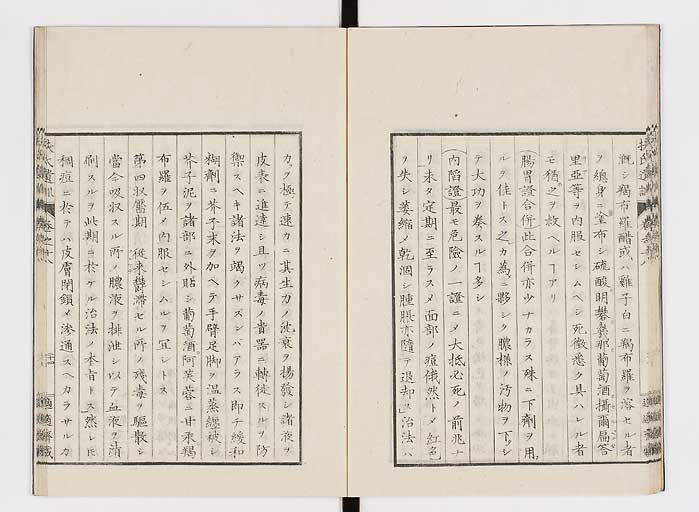 漑シ羯布羅醋或ハ雞子白ニ羯布羅ヲ溶セル者
ヲ總身ニ塗布シ硫酸明礬幾那葡萄酒攝爾扁答
里亞等ヲ内服セシムヘシ死徴悉ク具ハレル者
モ猶之ヲ救ヘルヿアリ
腸胃證合併此合併亦少ナカラス殊ニ下劑ヲ用
ルヲ佳トス之カ為ニ夥シク膿様ノ汚物ヲ下シ
テ大功ヲ奏スルヿ多シ
内陷證最モ危險ノ一證ニメ大抵必死ノ前兆ナ
リ未タ定期ニ至ラスメ面部ノ痘俄然トメ紅色
ヲ失シ萎縮メ乾涸シ腫脹亦隨テ退却ス治法ハ
力メテ極テ速カニ其生力ノ沈衰ヲ揚發シ諸液ヲ
皮表ニ進達シ且ツ病毒ノ貴器ニ轉徙スルヲ防
禦スヘキ諸法ヲ竭クサズンバアラス即チ緩和
糊劑ニ芥子末ヲ加ヘテ手臂足脚ヲ温蒸纏被シ
芥子泥ヲ諸部ニ外貼シ葡萄酒阿芙蓉ニ甘汞羯
布羅ヲ伍メ内服セシムルヲ宜シトス
第四收靨期 從來鬱滯セル所ノ殘毒ヲ驅散シ
當今吸収スル所ノ膿液ヲ排泄シ以テ血液ヲ清
刷スルヲ此期ニ於ケル治法ノ本旨トス然レ𪜈
稠痘ニ於テハ皮膚閉鎖メ滲通スヘカラサルカ